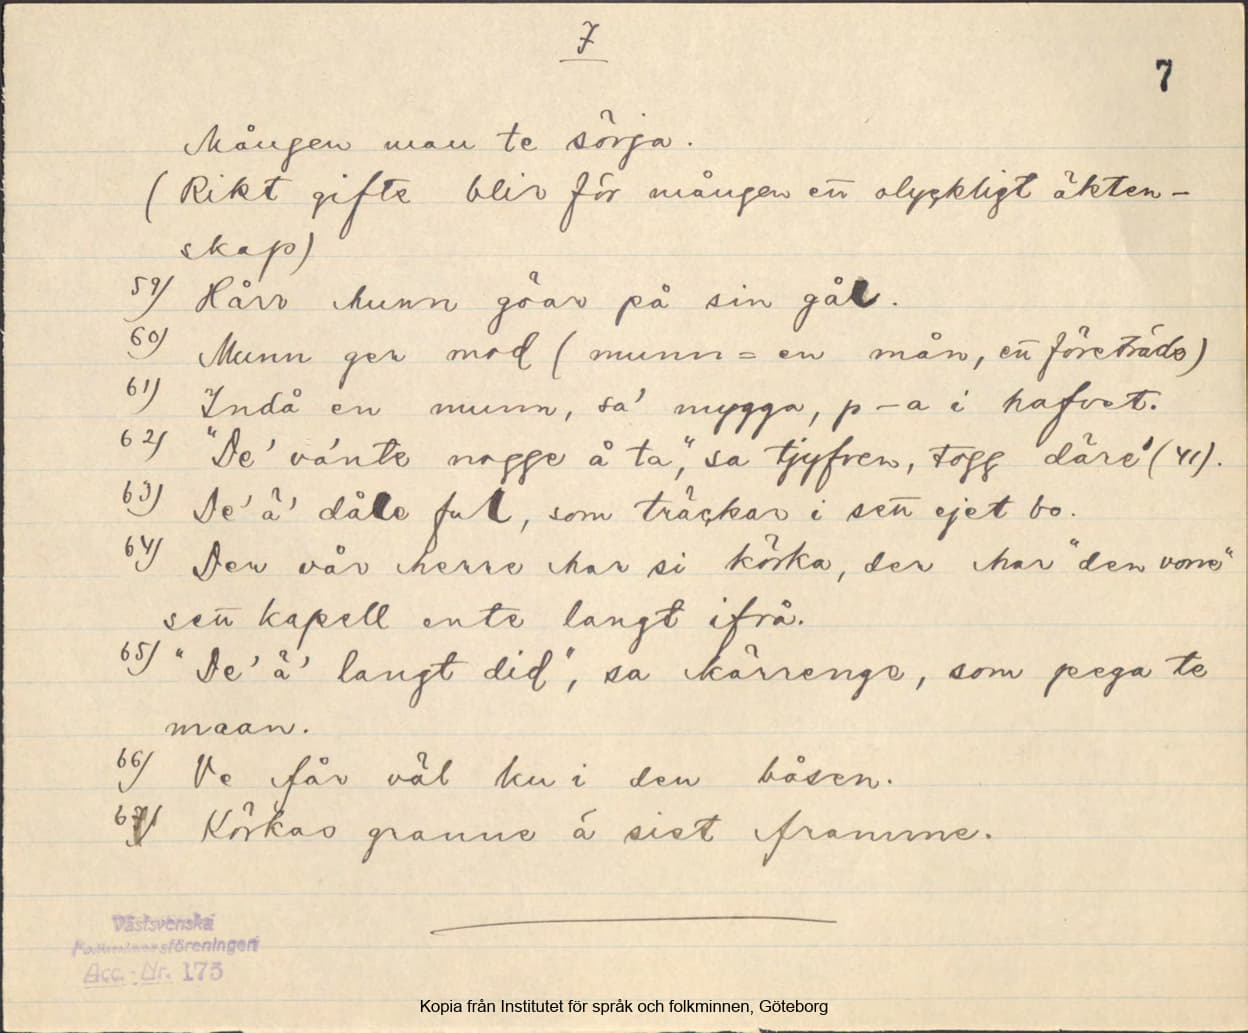 7
7
Mången man te sörja.
(Rikt gifte blir för mången ett olyckligt äkten-
skap)
59) Hårr hunn göar på sin gål.
60) Munn ger mod (munn = en mån, ett företräde)
61) Indå en munn, sa' mygga, p-a i hafvet.
62) "De' va'nte nogge å ta", sa tjyfven, togg däre' (41).
63) De' ä' dåle ful, som träckar i sett ejet bo.
64) Der vår herre har si körka, der har "den vonne"
sett kapell ente langt ifrå.
65) "De' ä' langt did", sa kärrenge, som pega te
maan.
66) Ve får väl ku i den båsen.
67) Körkas granne ä sist framme.
Västsvenska
Folkminnesföreningen
Acc.-Nr. 175
Kopia från Institutet för språk och folkminnen, Göteborg